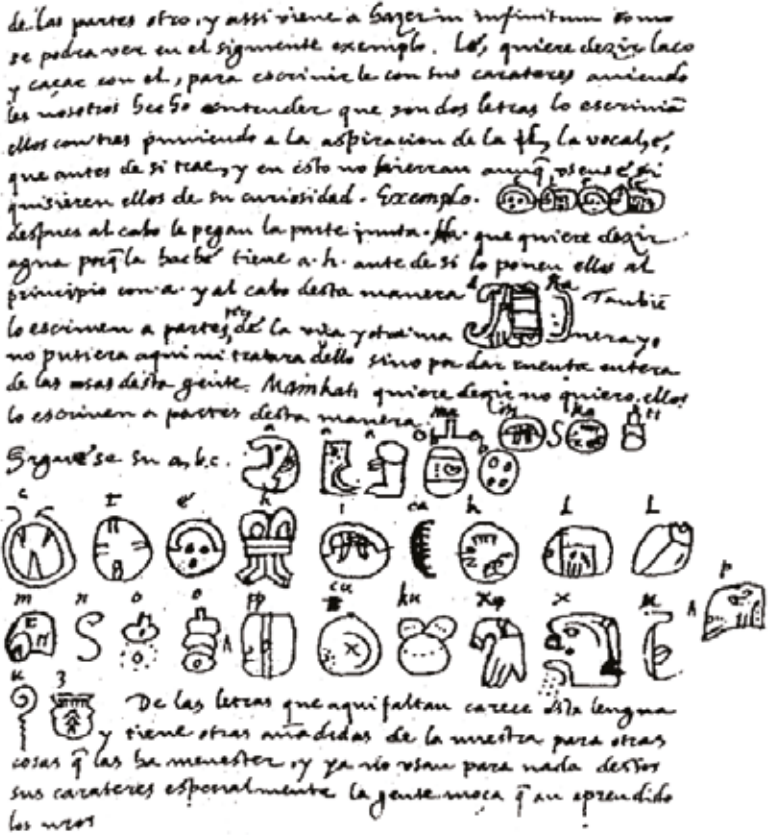 de las partes otro, y assi viene a hazer in infinitum como
se podra ver en el siguiente exemplo. Lé, quiere dezir laço
y caçar con el, para escrivirle con sus carateres aviendo
les nosotros hecho entender que son dos letras lo escrivian
ellos con tres puniendo a la aspiracion de la l la vocal e,
que antes de si trae, y en esto no hierran aunq̃ usen e si
quisieren ellos de su curiosidad. Exemplo.
despues al cabo le pegan la parte junta. Ha. que quiere dezir
agua porq̃ la hache tiene a. h. ante de si lo ponen ellos al
principio con a. y al cabo desta manera ha Tambiẽ
lo escriven a partes de la una y otra ma nera yo
no pusiera aqui ni tratara dello sino por dar cuenta entera
de las cosas desta gente. Mainkati quiere dezir no quiero. ellos
lo escriven a partes desta manera. ma i n ka ti
Siguese su a, b, c. a a a
c t é h i ca k l L
m n o o pp cu ku x x u p
u z De las letras que aqui faltan carece esta lengua
y tiene otras añadidas de la nuestra para otras
cosas q̃ las ha menester, y ya no usan para nada destos
sus carateres especialmente la gente moça q̃ an aprendido
los nros